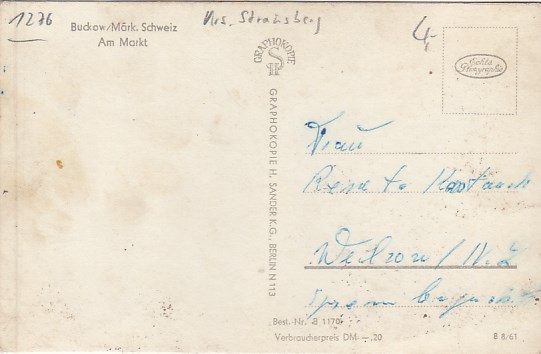 1276
Buckow/Märk. Schweiz
Am Markt
Krs. Strausberg
4,-
GRAPHOKOPIE
Echte Photographie
GRAPHOKOPIE H. SANDER K.G., BERLIN N 113
Frau
Renate
/ N. L
Best. Nr. B 1170
Verbraucherpreis DM -.20
B 8/61